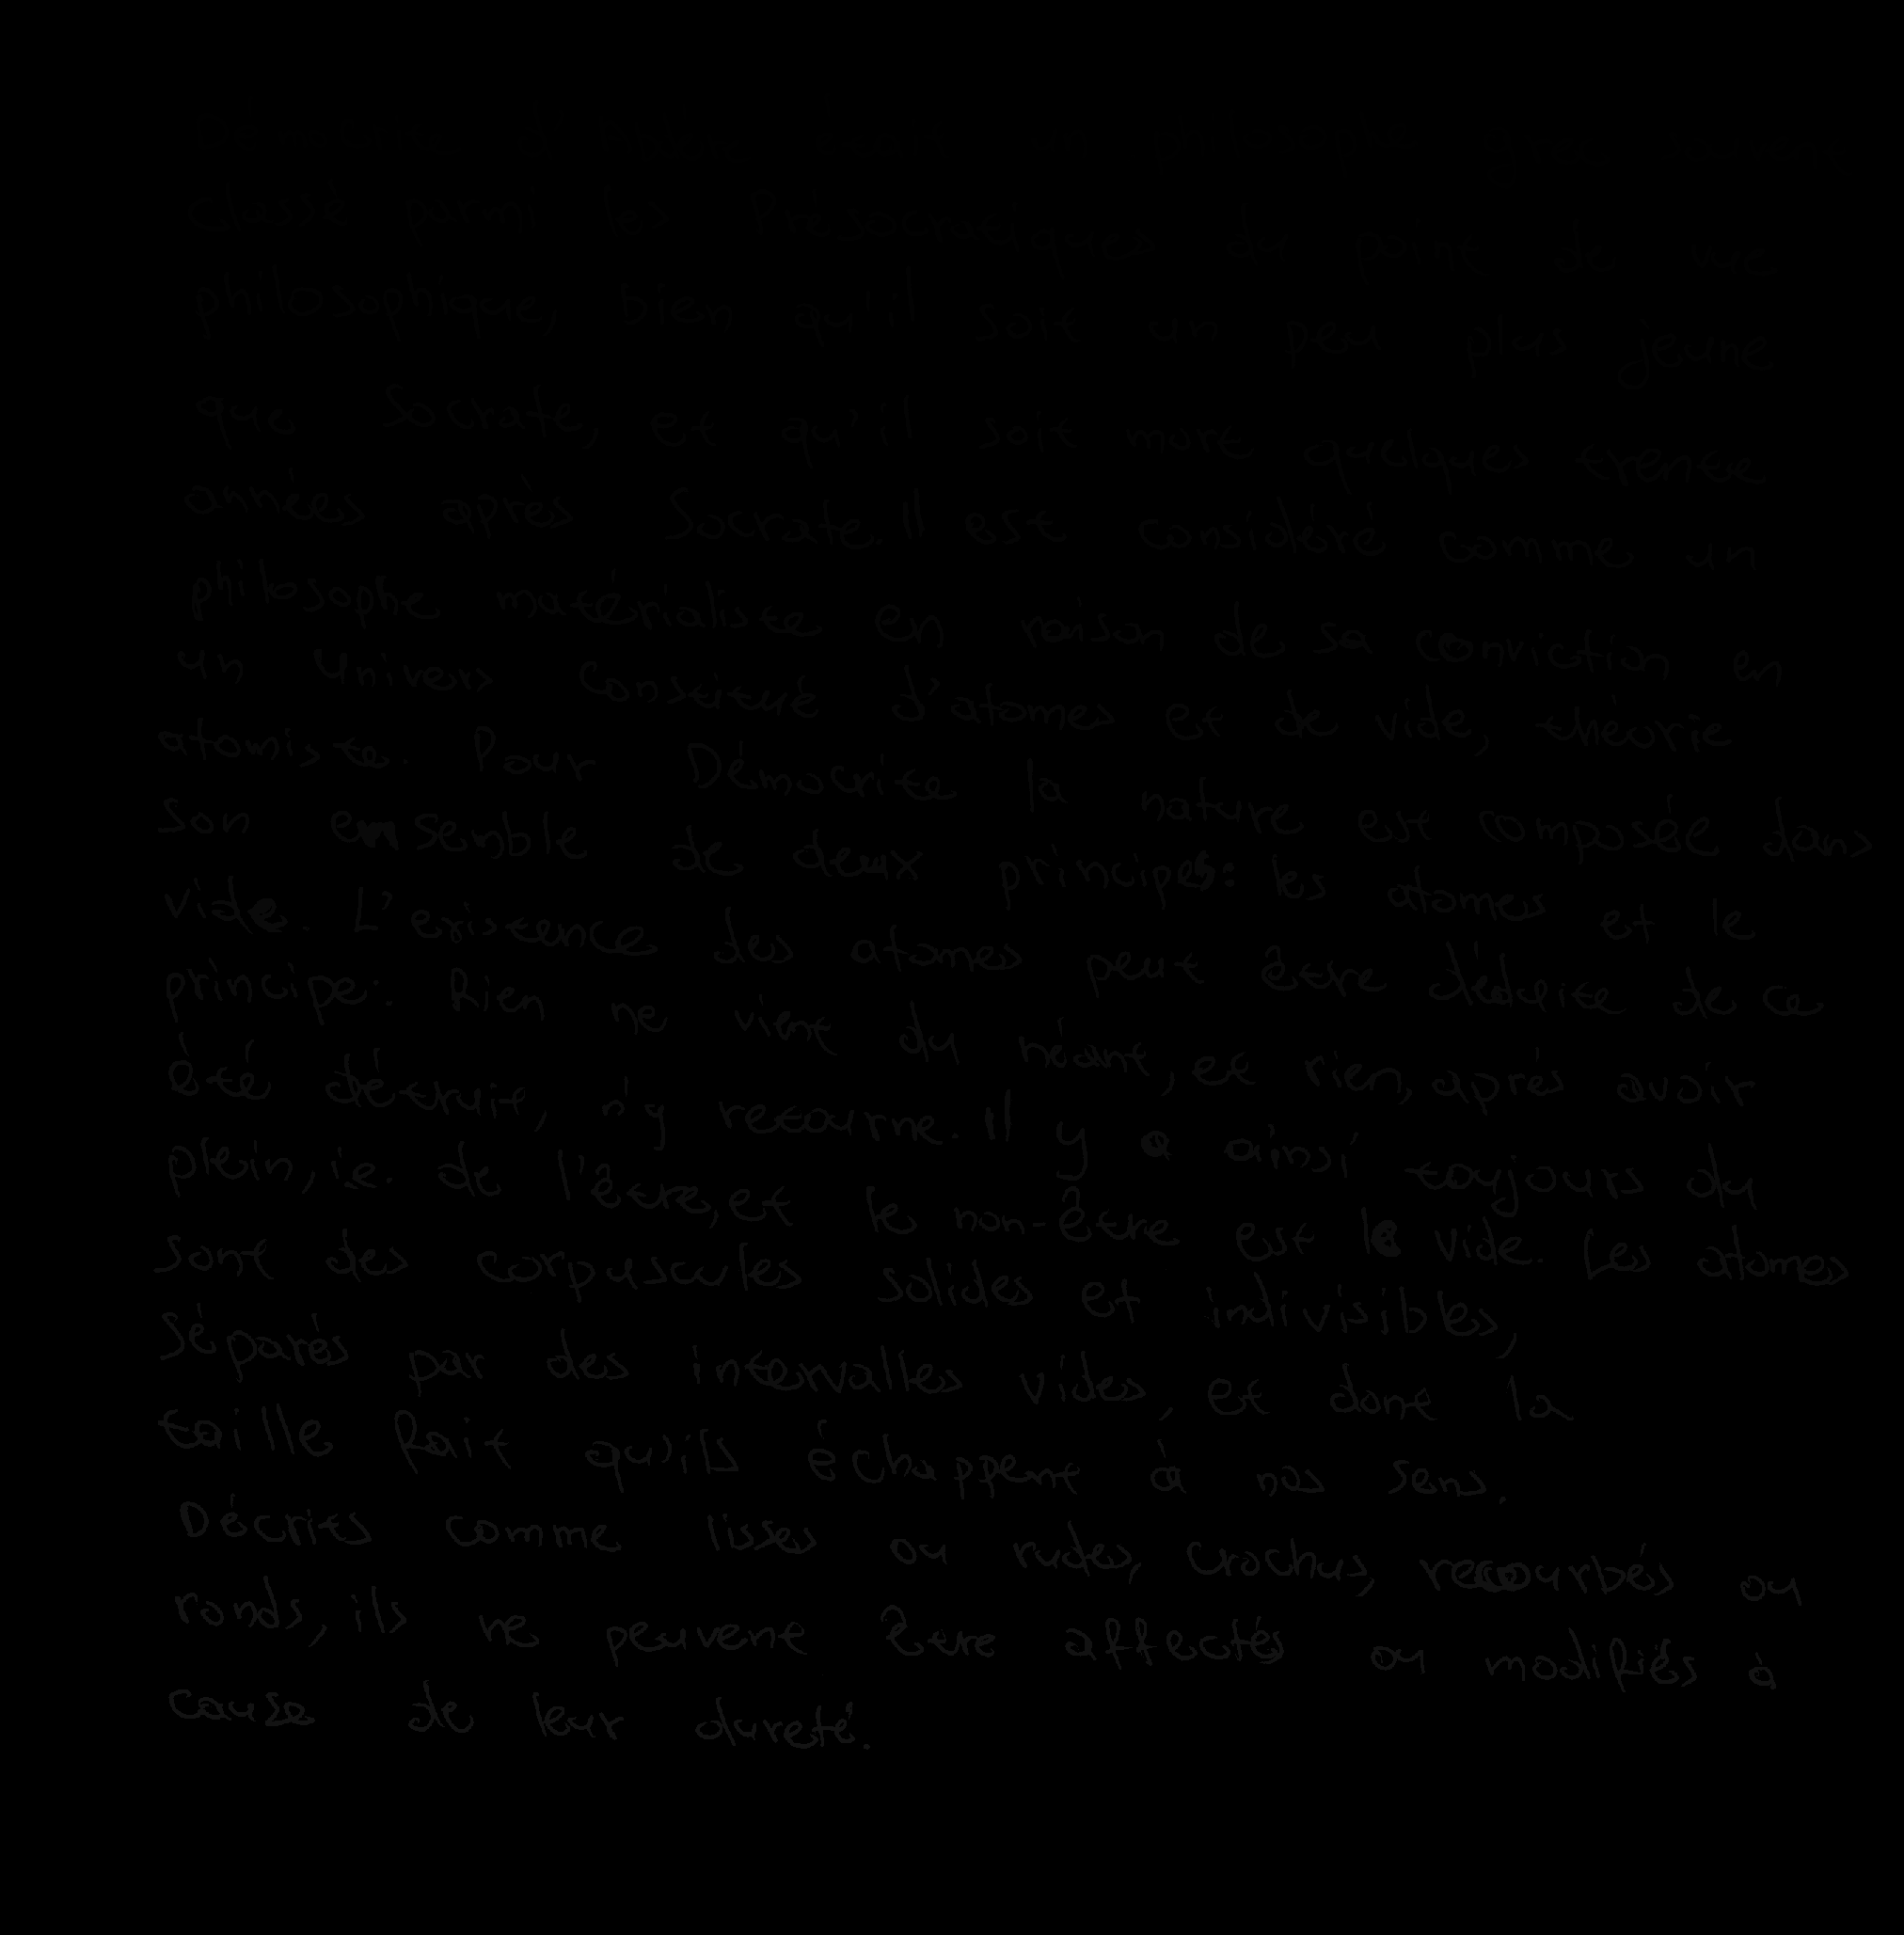 classé parmi les Présocratiques du point de vue
philosophique, bien qu'il soit un peu plus jeune
que Socrate, et qu'il soit mort quelques trente
années après Socrate. Il est considéré comme un
philosophe matérialiste en raison de sa conviction en
un Univers constitué d'atomes et de vide, théorie
atomiste. Pour Démocrite la nature est composée dans
son ensemble de deux principes: les atomes et le
vide. L'existence des atomes peut être déduite de ce
principe: Rien ne vient du néant, et rien, après avoir
été détruit, n'y retourne. Il y a ainsi toujours du
plein, i.e. de l'être, et le non-être est le vide. Les atomes
sont des corpuscules solides et indivisibles,
séparés par des intervalles vides, et dont la
taille fait qu'ils échappent à nos sens.
Décrits comme lisses ou rudes, crochus, recourbés ou
ronds, ils ne peuvent être affectés ou modifiés à
cause de leur dureté.